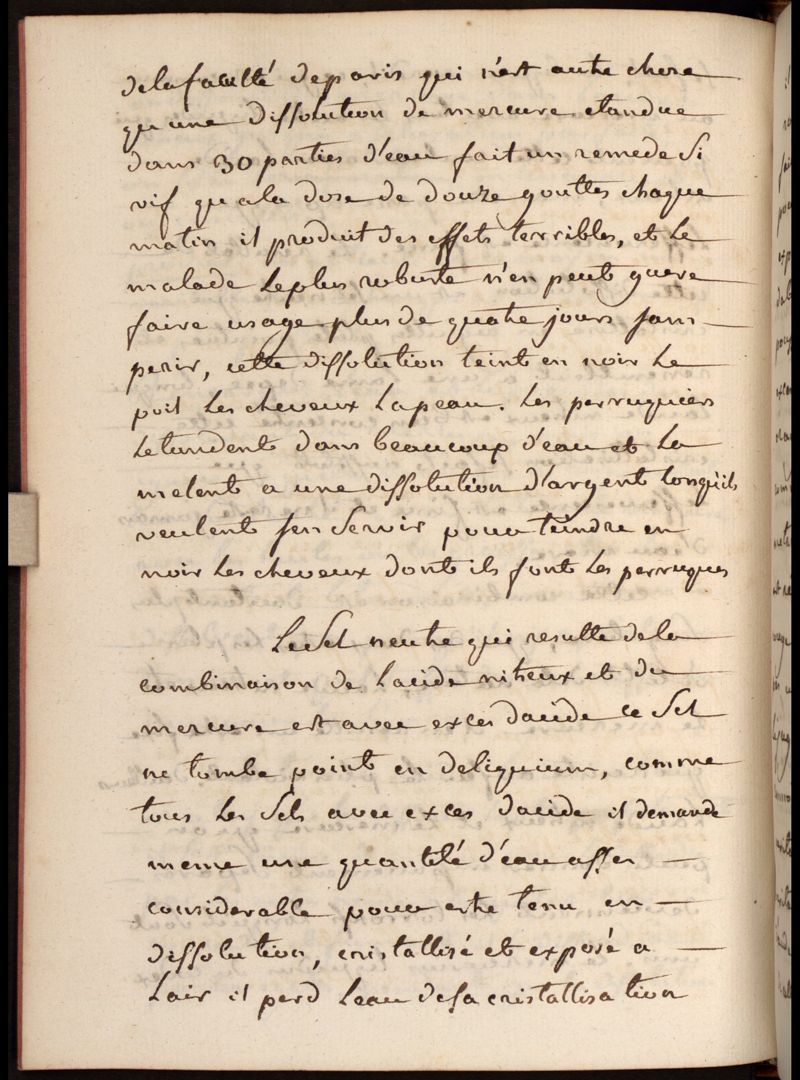 delafaculté deparis qui n'est autre chose
qu'une dissolution de mercure etandue
dans 30 parties d'eau fait un remede si
vif qu'ala dose de douze gouttes chaque
matin il produit des effets terribles, et le
malade leplus robuste n'en peut guere
faire usage plus de quatre jours sans —
perir, cette dissolution teint en noir le
poil les cheveux lapeau. les perruquiers
letandent dans beaucoup d'eau et la
melent a une dissolution d'argent lorsqu'ils
veulent sen servir pour teindre en
noir les cheveux dont ils font les perruques
Le sel neutre qui resulte dela
combinaison de lacide nitreux et du
mercure est avec exces dacide ce sel
ne tombe point en deliquium, comme
tous les sels avec exces dacide il demande
meme une quantité d'eau assez —
considerable pour estre tenu en —
dissolution, cristallisé et exposé a —
lair il perd leau desa cristallisation